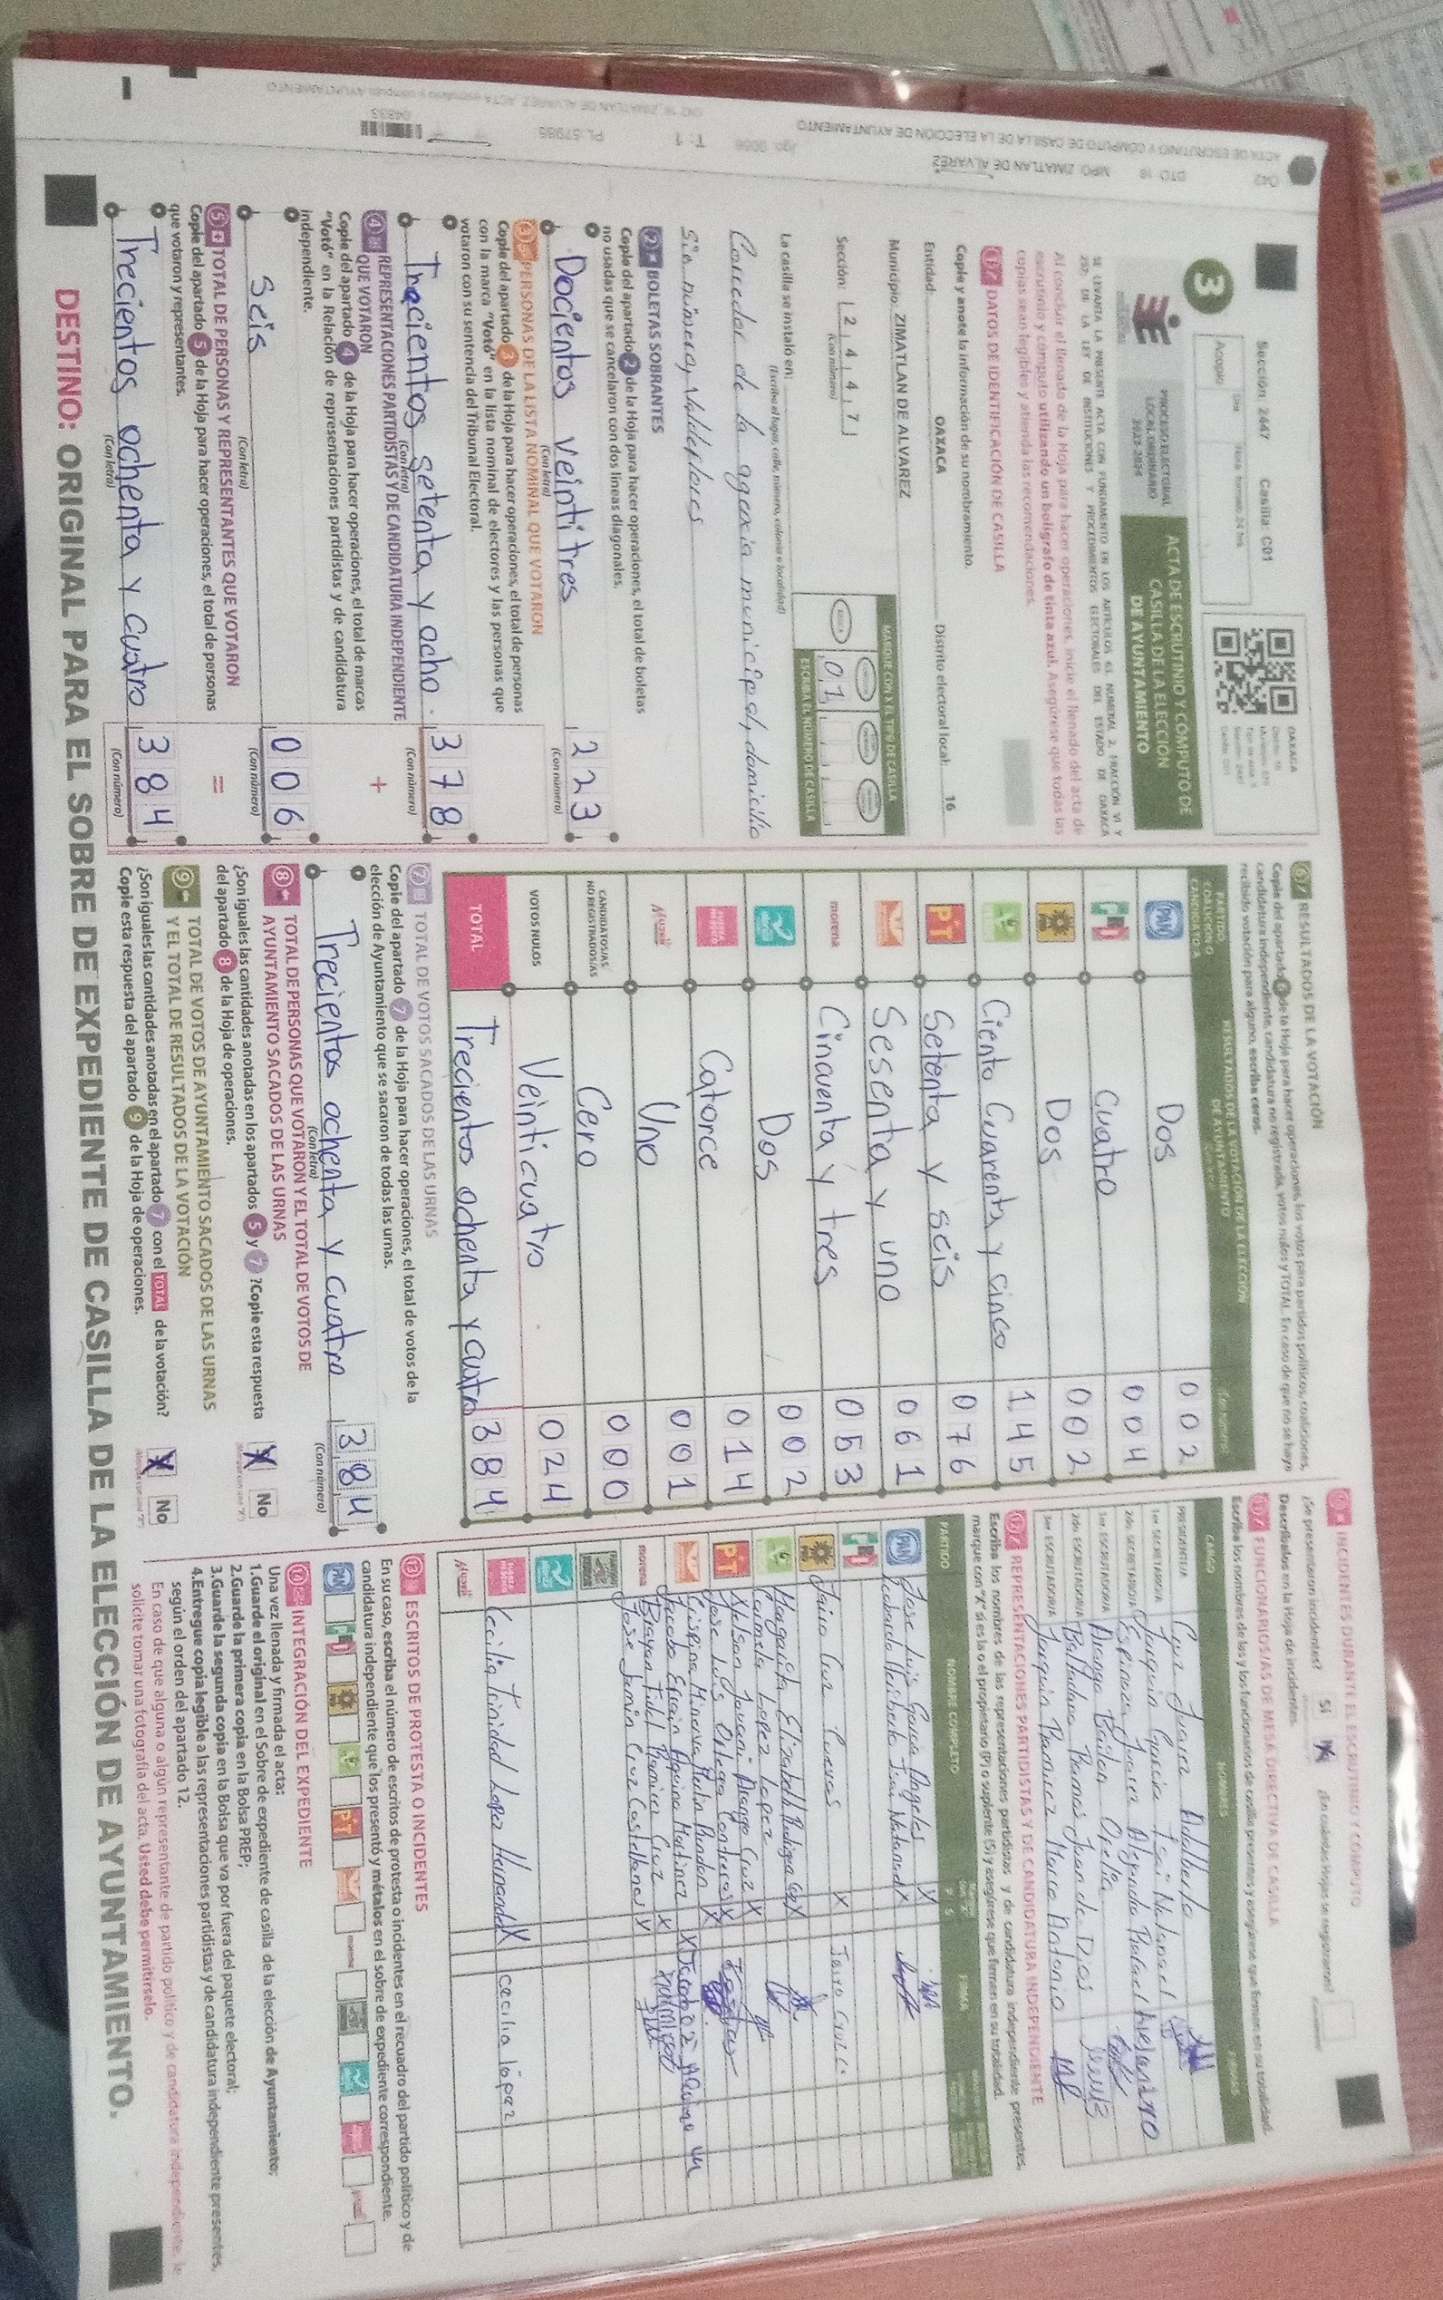 Sección: 2447 Casilla: C01
OAXACA
3
Acopio
PROCESO ELECTORAL
LOCAL ORDINARIO
2023-2024
ACTA DE ESCRUTINIO Y CÓMPUTO DE
CASILLA DE LA ELECCIÓN
DE AYUNTAMIENTO
SE LEVANTA LA PRESENTE ACTA CON FUNDAMENTO EN LOS ARTÍCULOS 61, NUMERAL 2, FRACCIÓN VI Y
DE LA LEY DE INSTITUCIONES Y PROCEDIMIENTOS ELECTORALES DEL ESTADO DE OAXACA
Al concluir el llenado de la Hoja para hacer operaciones, inicie el llenado del acta de
escrutinio y cómputo utilizando un bolígrafo de tinta azul. Asegúrese que todas las
copias sean legibles y atienda las recomendaciones.
1 DATOS DE IDENTIFICACIÓN DE CASILLA
Copie y anote la información de su nombramiento.
Entidad: OAXACA Distrito electoral local: 16
Municipio: ZIMATLAN DE ALVAREZ
MARQUE CON X EL TIPO DE CASILLA
Sección: 2 4 4 7
(Con número)
0 1
ESCRIBA EL NÚMERO DE CASILLA
La casilla se instaló en:
(Escriba el lugar, calle, número, colonia o localidad)
Corredor de la agencia municipal, domicilio
Sin número, Valdeflores
2 BOLETAS SOBRANTES
Copie del apartado 2 de la Hoja para hacer operaciones, el total de boletas
no usadas que se cancelaron con dos líneas diagonales.
Docientos veintitres 223
(Con letra) (Con número)
3 PERSONAS DE LA LISTA NOMINAL QUE VOTARON
Copie del apartado 3 de la Hoja para hacer operaciones, el total de personas
con la marca "Votó" en la lista nominal de electores y las personas que
votaron con su sentencia del Tribunal Electoral.
Trecientos setenta y ocho 378
(Con letra) (Con número)
4 REPRESENTACIONES PARTIDISTAS Y DE CANDIDATURA INDEPENDIENTE
QUE VOTARON
+
Copie del apartado 4 de la Hoja para hacer operaciones, el total de marcas
"Votó" en la Relación de representaciones partidistas y de candidatura
independiente.
Seis 006
(Con letra) (Con número)
5 TOTAL DE PERSONAS Y REPRESENTANTES QUE VOTARON
=
Copie del apartado 5 de la Hoja para hacer operaciones, el total de personas
que votaron y representantes.
Trecientos ochenta y cuatro 384
(Con letra) (Con número)
6 RESULTADOS DE LA VOTACIÓN
Copie del apartado 6 de la Hoja para hacer operaciones, los votos para partidos políticos, coaliciones,
candidatura independiente, candidatura no registrada, votos nulos y TOTAL. En caso de que no se haya
recibido votación para alguno, escriba ceros.
PARTIDO, COALICIÓN O CANDIDATO/A
RESULTADOS DE LA VOTACIÓN DE LA ELECCIÓN
DE AYUNTAMIENTO
PAN Dos 002
PRI Cuatro 004
Dos 002
Ciento Cuarenta y cinco 145
PT Setenta y seis 076
Sesenta y uno 061
morena Cincuenta y tres 053
Dos 002
Catorce 014
Uno 001
CANDIDATOS/AS NO REGISTRADOS/AS Cero 000
VOTOS NULOS Veinticuatro 024
TOTAL Trecientos ochenta y cuatro 384
7 TOTAL DE VOTOS SACADOS DE LAS URNAS
Copie del apartado 7 de la Hoja para hacer operaciones, el total de votos de la
elección de Ayuntamiento que se sacaron de todas las urnas.
Trecientos ochenta y cuatro 384
(Con letra) (Con número)
8 TOTAL DE PERSONAS QUE VOTARON Y EL TOTAL DE VOTOS DE
AYUNTAMIENTO SACADOS DE LAS URNAS
¿Son iguales las cantidades anotadas en los apartados 5 y 7? Copie esta respuesta
del apartado 8 de la Hoja de operaciones.
X No
9 TOTAL DE VOTOS DE AYUNTAMIENTO SACADOS DE LAS URNAS
Y EL TOTAL DE RESULTADOS DE LA VOTACIÓN
¿Son iguales las cantidades anotadas en el apartado 7 con el TOTAL de la votación?
Copie esta respuesta del apartado 9 de la Hoja de operaciones.
X No
INCIDENTES DURANTE EL ESCRUTINIO Y CÓMPUTO
¿Se presentaron incidentes? Sí
Descríbalos en la Hoja de incidentes.
FUNCIONARIOS/AS DE MESA DIRECTIVA DE CASILLA
Escriba los nombres de las y los funcionarios de casilla presentes y asegúrese que firmen en su totalidad.
CARGO NOMBRES FIRMAS
PRESIDENTE/A Cruz Juarez Adalberto
1er. SECRETARIO/A Joaquin Garcia Isai Natanael
2do. SECRETARIO/A Espinoza Juarez
1er. ESCRUTADOR/A Arango Bailon Ofelia
2do. ESCRUTADOR/A Baltadano Ramos Juan de Dios
3er. ESCRUTADOR/A Joaquin Ramirez Marco Antonio
REPRESENTACIONES PARTIDISTAS Y DE CANDIDATURA INDEPENDIENTE
Escriba los nombres de las representaciones partidistas y de candidatura independiente presentes,
marque con "X" si es la o el propietario (P) o suplente (S) y asegúrese que firmen en su totalidad.
PARTIDO NOMBRE COMPLETO FIRMA
PAN Jose Luis Garcia Angeles X
X
PRI
Jairo Cruz Cuevas X
Margarita Elizabeth X
Camila Lopez Lopez X
PT Nelson Jovani Arango Cruz X
Jose Luis Ortega Contreras X
Crispina Minerva X
Jacobo Efrain Aquino Martinez X
morena Brayan Fidel Ramirez Cruz X
Jose Jamin Cruz Castellanos X
Cecilia Trinidad Lopez Hernandez X cecilia lópez
13 ESCRITOS DE PROTESTA O INCIDENTES
En su caso, escriba el número de escritos de protesta o incidentes en el recuadro del partido político y de
candidatura independiente que los presentó y métalos en el sobre de expediente correspondiente.
PAN PRI PT
14 INTEGRACIÓN DEL EXPEDIENTE
Una vez llenada y firmada el acta:
1.Guarde el original en el Sobre de expediente de casilla de la elección de Ayuntamiento;
2.Guarde la primera copia en la Bolsa PREP;
3.Guarde la segunda copia en la Bolsa que va por fuera del paquete electoral;
4.Entregue copia legible a las representaciones partidistas y de candidatura independiente presentes,
según el orden del apartado 12.
En caso de que alguna o algún representante de partido político y de candidatura independiente, le
solicite tomar una fotografía del acta, Usted debe permitírselo.
DESTINO: ORIGINAL PARA EL SOBRE DE EXPEDIENTE DE CASILLA DE LA ELECCIÓN DE AYUNTAMIENTO.
ACTA DE ESCRUTINIO Y CÓMPUTO DE CASILLA DE LA ELECCIÓN DE AYUNTAMIENTO
DTO 16 MPO ZIMATLAN DE ALVAREZ